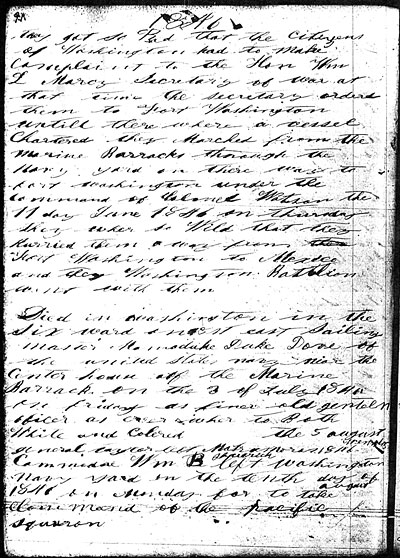 1846
they got so Bad that the Citizens
of Washington had to make
Complaint to the Hon Wm
L Marcy Secretary of war at
that time the Secretary orders
them to Fort Washington
untill there where a vessel
Chartered they Marched from the
Marine Barracks through the
Navy yard on there way to
fort Washington under the
Command of Colonel Watson the
11 day June 1846 on thursday
they wher so Wild that they
hurried them away from the
Fort Washington to Mexico
and they Washington Batlion
went with them
Died in washington in the
Six ward east Sailing
master Marmaduke Dove of
the united States navy near the
Center house off the Marine
Barrack on the 3 of July 1846
on Friday as finer old gentelm
oficer as ever wher to Both
White and Colered the 5 august
general taylor left
Commodoe Wm B left Washington
Navy yard in the tenth day of
August
1846 on Monday for to take
Command of the pacific
squaron